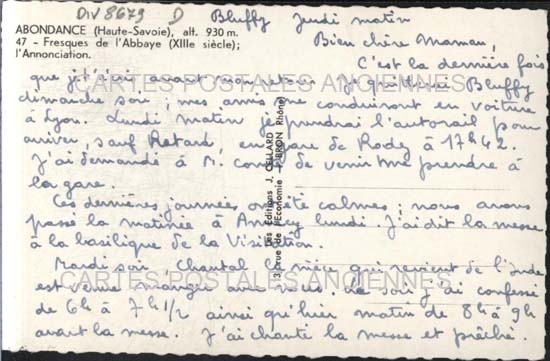 DIV 8679 D
Bluffy Jeudi matin
ABONDANCE (Haute-Savoie), alt. 930 m.
47 - Fresques de l'Abbaye (XIIIe siècle);
l'Annonciation.
Bien chère Maman,
C'est la dernière fois
que je t'écris avant mon retour. Je quitterai Bluffy
dimanche soir; mes amis me conduiront en voiture
à Lyon. Lundi matin je prendrai l'autorail pour
arriver, sauf Retard, en gare de Rodez à 17h42.
J'ai demandé à M. de venir me prendre à
la gare.
Ces dernières journées ont été calmes; nous avons
passé la matinée à Annecy lundi. J'ai dit la messe
à la basilique de la Visitation.
Mardi soir, Chantal qui revient de l'Inde
est venue manger avec nous. Le soir j'ai confessé
de 6h à 7h1/2 ainsi qu'hier matin de 8h à 9h
avant la messe. J'ai chanté la messe et prêché.
Les Editions J. CELLARD
3, rue de l'Economie - BRON (Rhône)
CARTES POSTALES ANCIENNES
CARTES POSTALES ANCIENNES